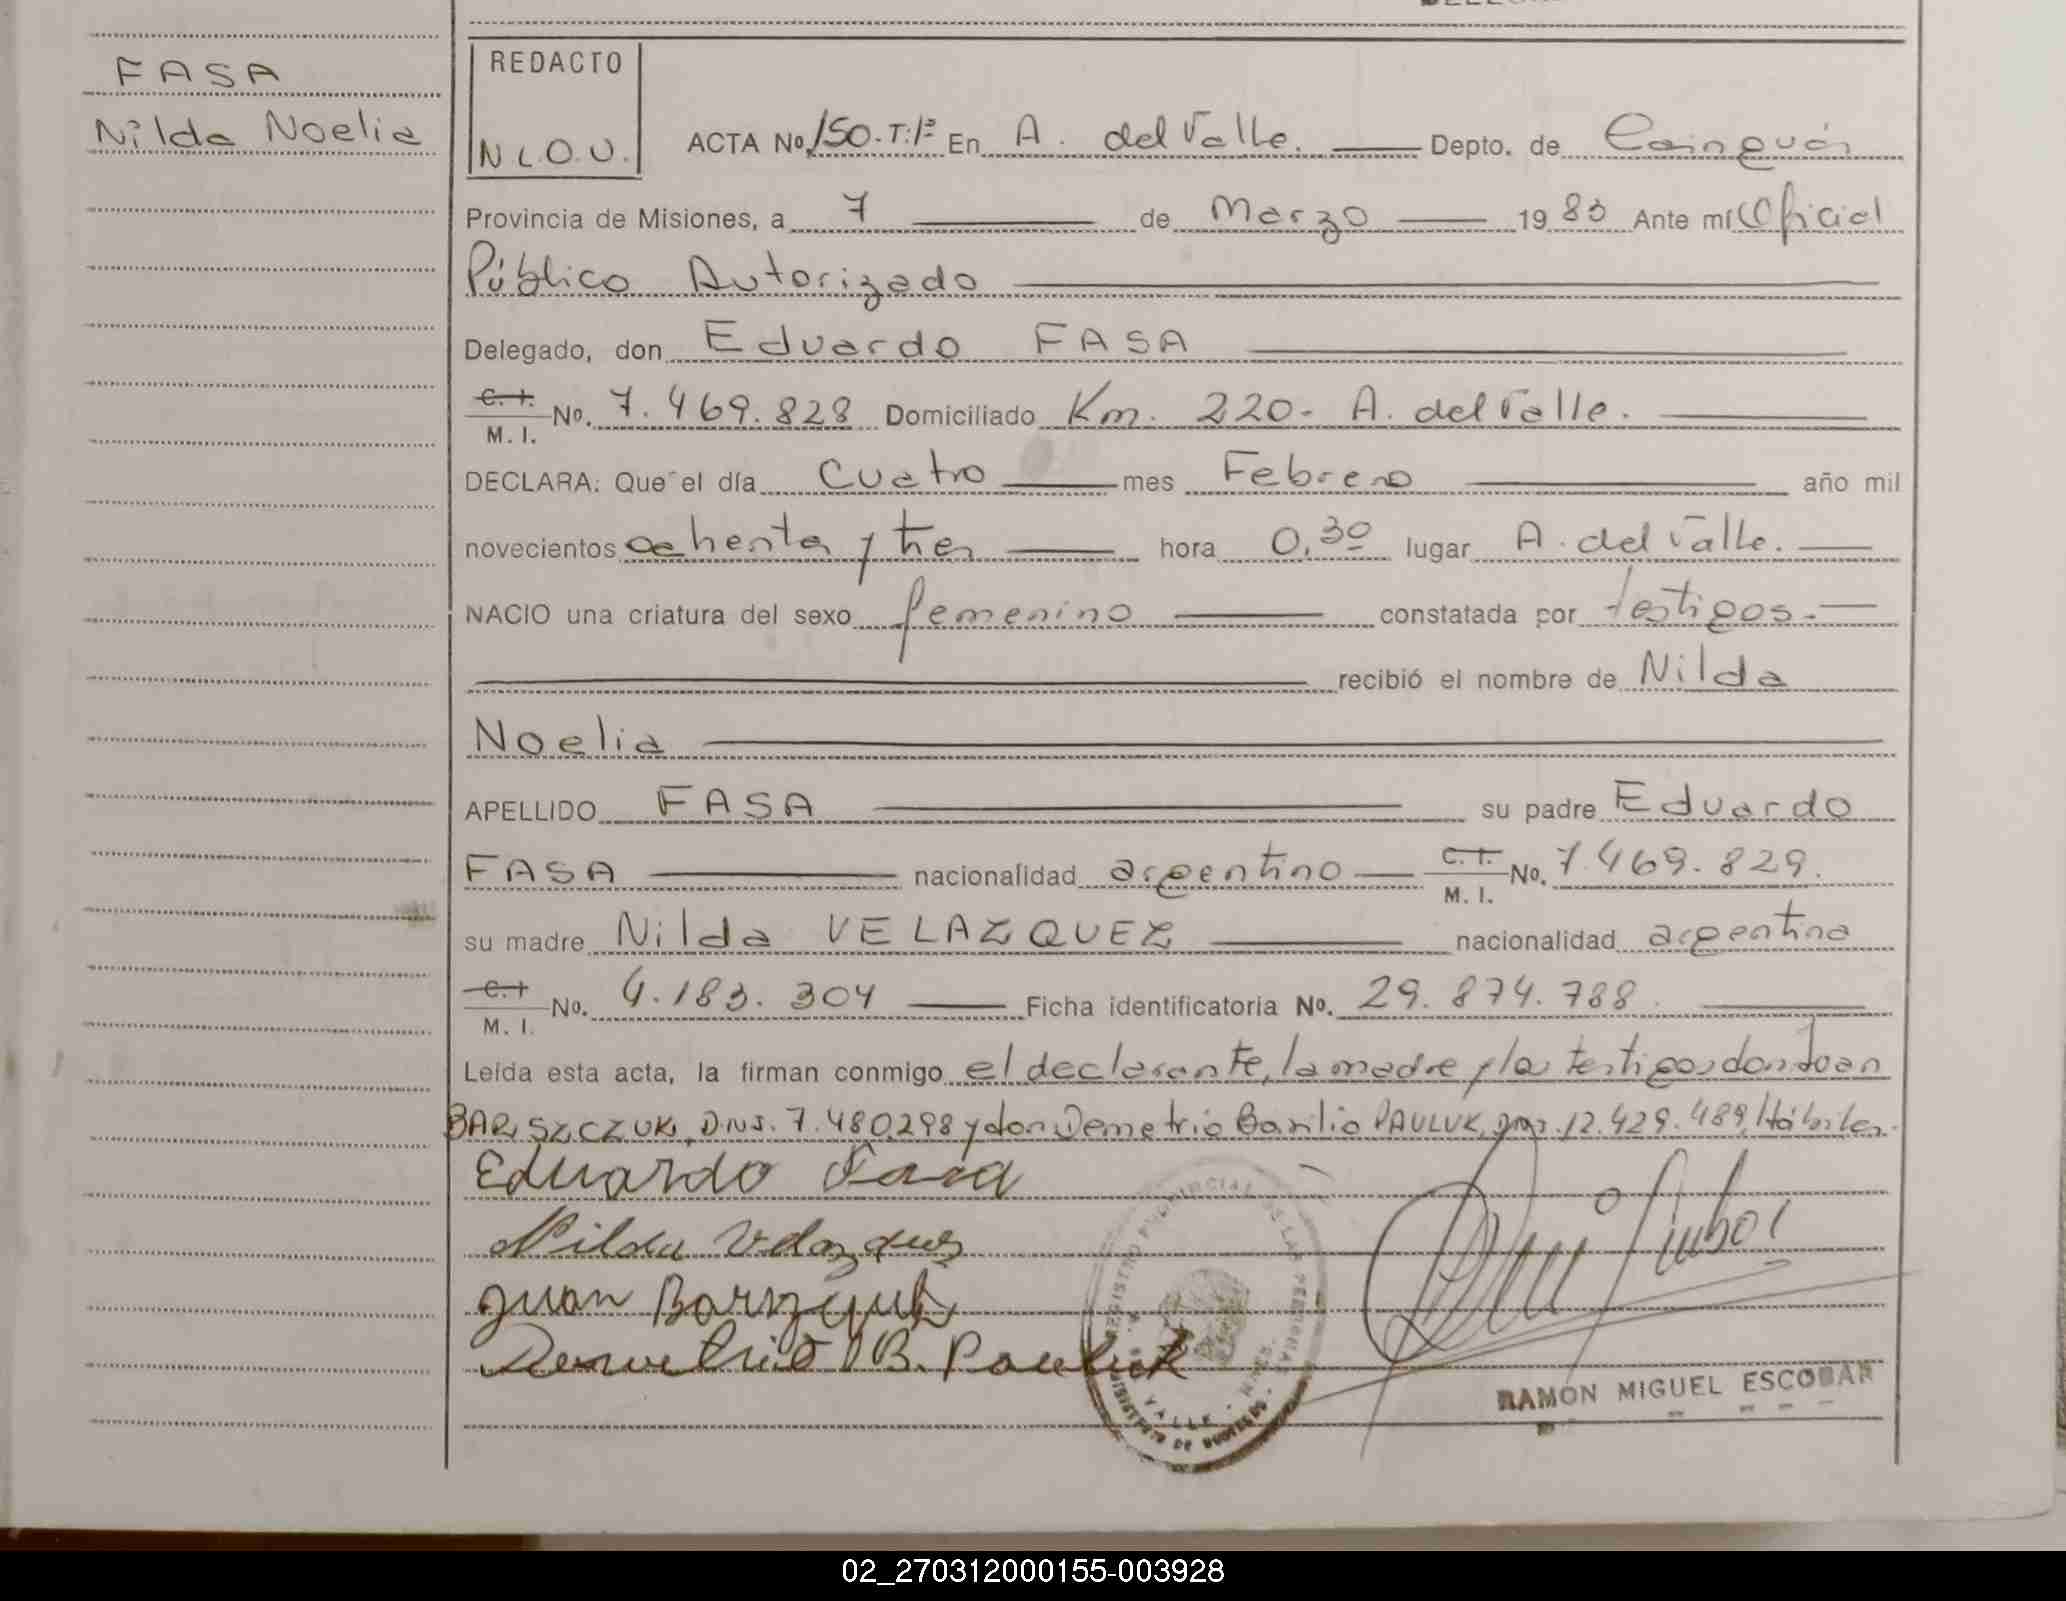 FASA
Nilda Noelia
REDACTO
N L.O.U.
ACTA No. 150.T:1º En A. del Valle. Depto. de Cainguás
Provincia de Misiones, a 7 de Marzo 1983 Ante mí Oficial
Público Autorizado
Delegado, don Eduardo FASA
C. I. M. I. No. 7.469.828 Domiciliado Km. 220- A. del Valle.
DECLARA: Que el día Cuatro mes Febrero año mil
novecientos ochenta y tres hora 0,30 lugar A. del Valle.
NACIO una criatura del sexo femenino constatada por testigos.
recibió el nombre de Nilda
Noelia
APELLIDO FASA su padre Eduardo
FASA nacionalidad argentino C. I. M. I. No. 7.469.829.
su madre Nilda VELAZQUEZ nacionalidad argentina
C. I M. I. No. 4.183.304 Ficha identificatoria No. 29.874.788.
Leída esta acta, la firman conmigo el declarante, la madre y los testigos don Juan
BARSZCZUK, D.N.I. 7.480.298 y don Demetrio Basilio PAULUK, 12.429.489, Hábiles.
Eduardo Fasa
Nilda Velazquez
Juan
Demetrio B. Pauluk
REGISTRO PROVINCIAL DE LAS PERSONAS
VALLE
RAMON MIGUEL ESCOBAR
02_270312000155-003928